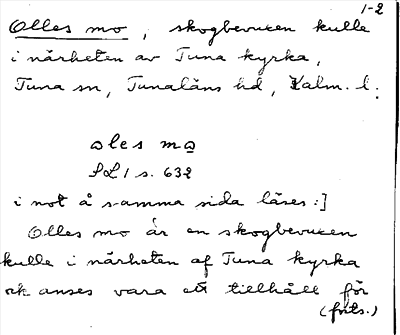 1-2
Olles mo, skogbevuxen kulle
i närheten av Tuna kyrka,
Tuna sn, Tunaläns hd, Kalm. l.
oles mo
SL 1 s. 632
i not å samma sida läses:]
Olles mo är en skogbevuxen
kulle i närheten af Tuna kyrka
och anses vara ett tillhåll för
(forts.)